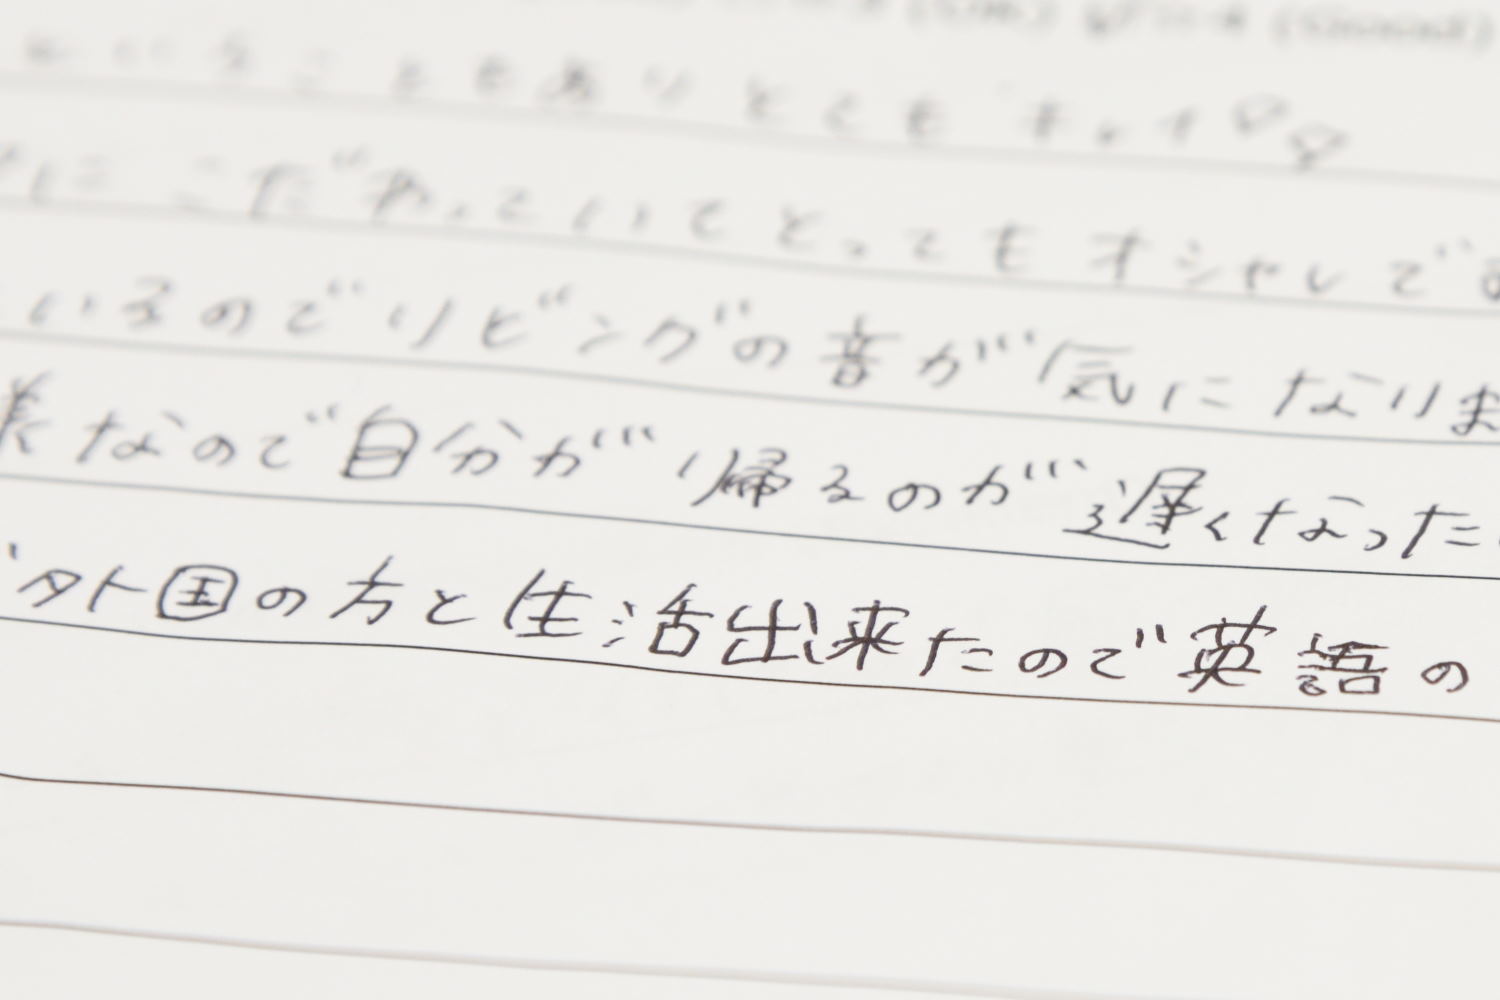 (Good)
いうこともありとてもキレイ
にこだわっていてとってもオシャレです
いるのでリビングの音が気になりま
様なので自分が帰るのが遅くなった
外国の方と生活出来たので英語の